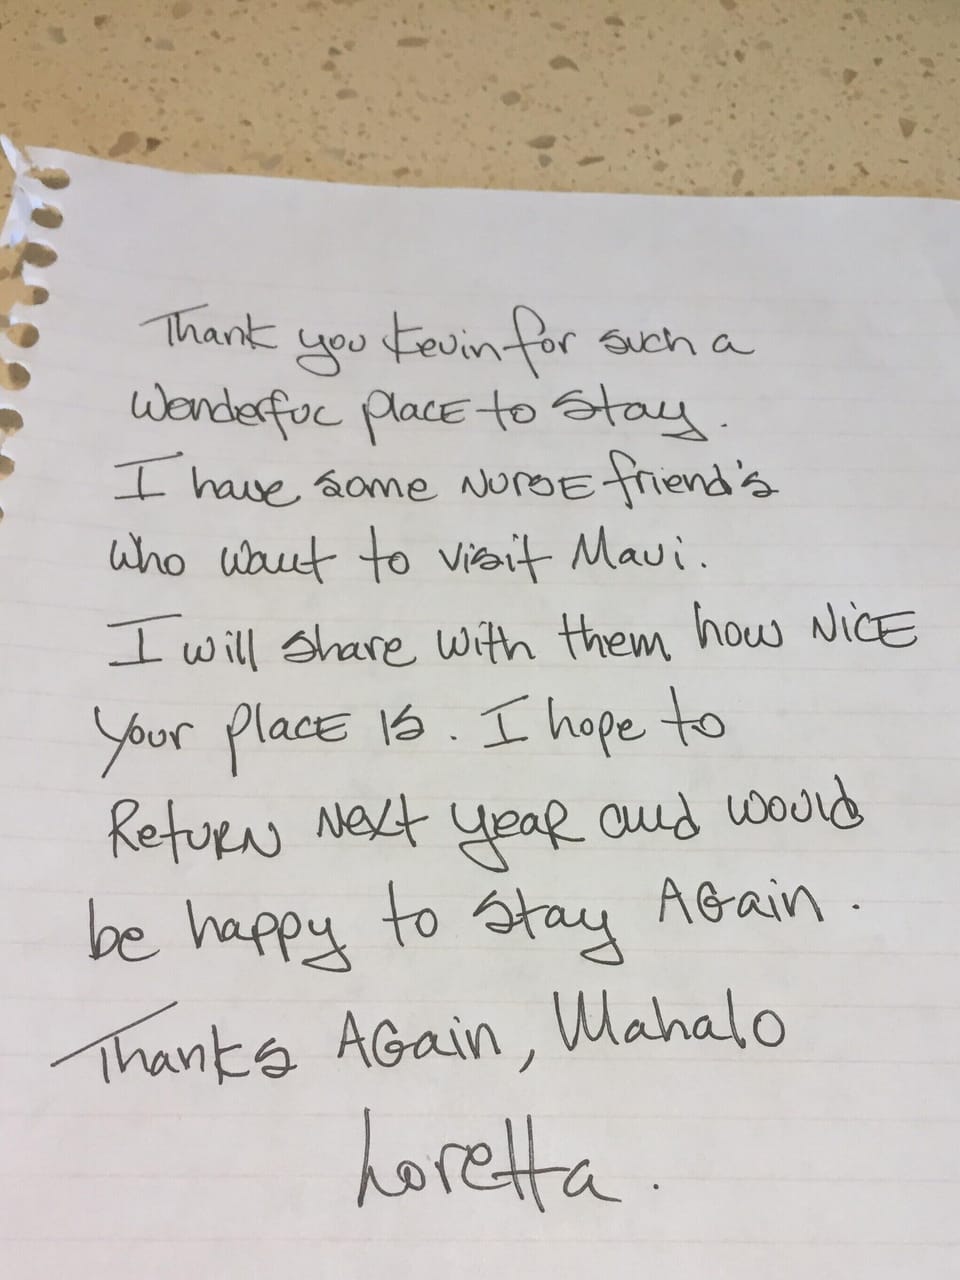 Thank you Kevin for such a
Wonderful place to stay.
I have some NURSE friend's
who want to visit Maui.
I will share with them how NiCE
your place is. I hope to
Return Next year and would
be happy to stay AGain.
Thanks AGain, Mahalo
Loretta.